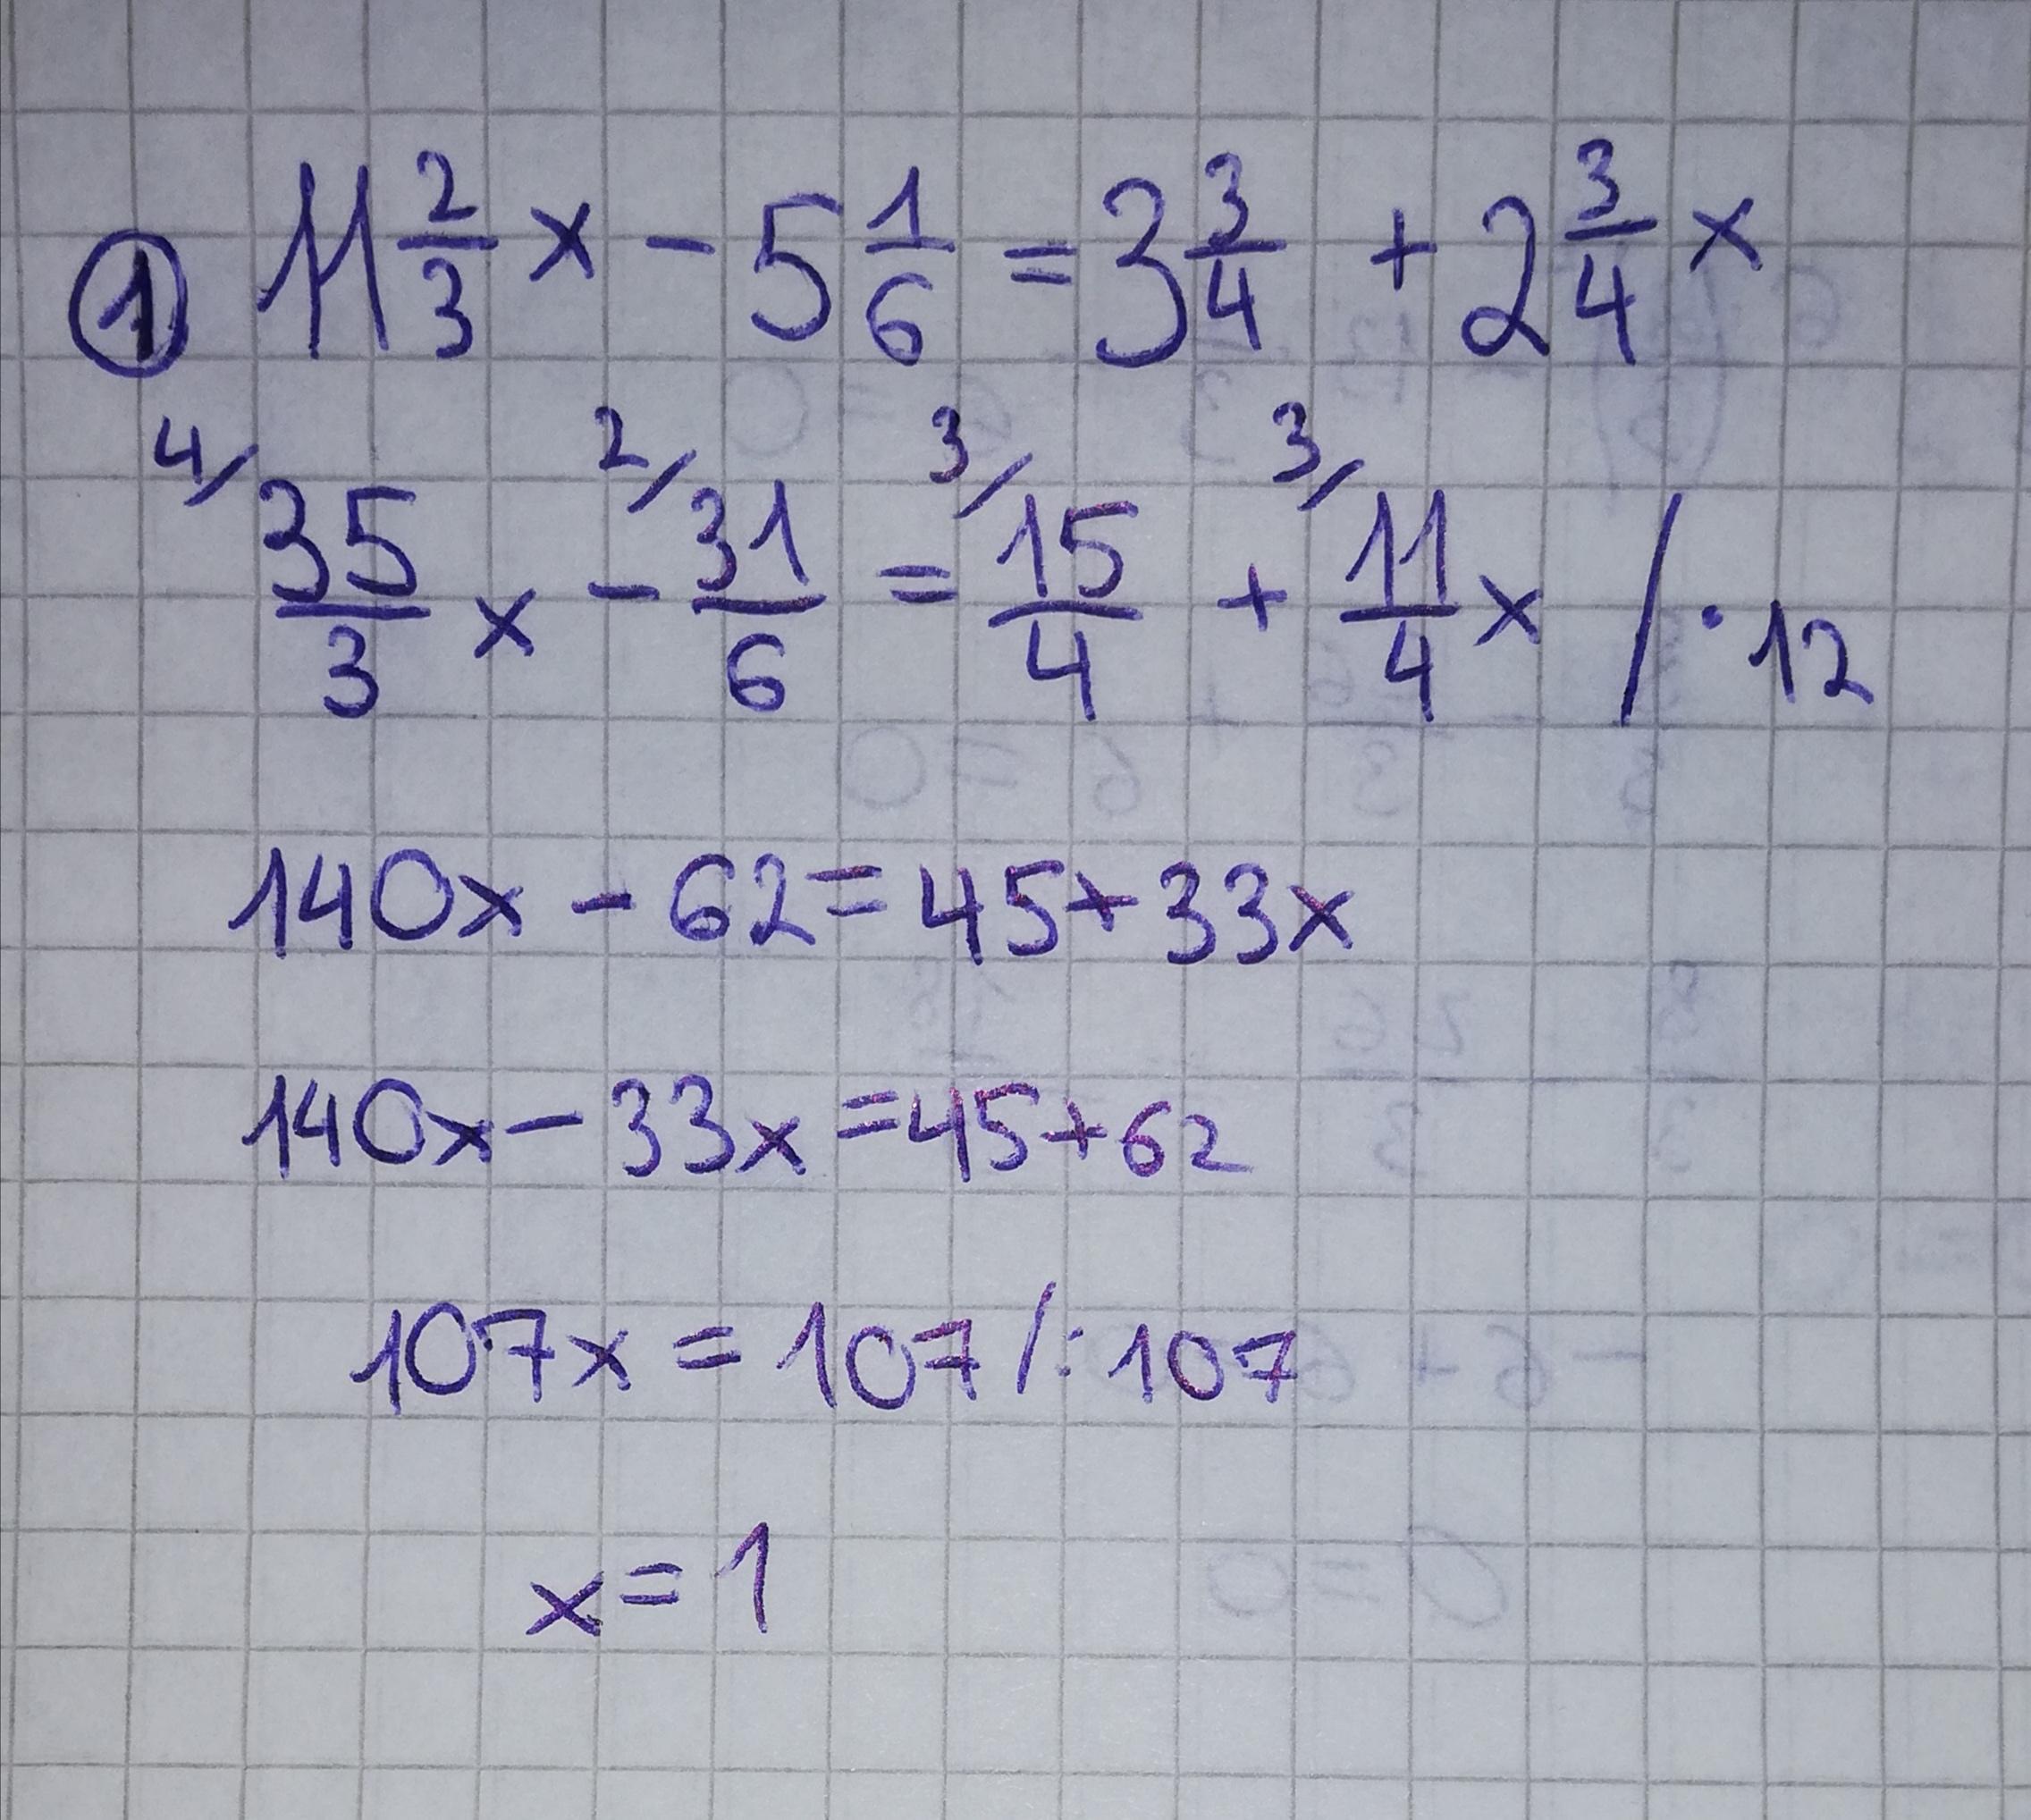 ① 11 2/3 x - 5 1/6 = 3 3/4 + 2 3/4 x
4/ 35/3 x - 2/ 31/6 = 3/ 15/4 + 3/ 11/4 x / · 12
140x - 62 = 45 + 33x
140x - 33x = 45 + 62
107x = 107 / : 107
x = 1